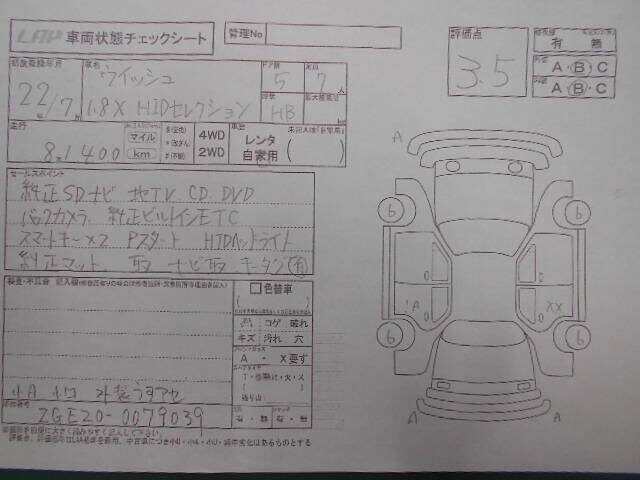 LAA 車両状態チェックシート
管理No
評価点
3.5
有 無
A・B・C
A・B・C
初度登録年月
22/7
車名
ウィッシュ
1.8X HIDセレクション
ドア数
5
定員
7人
HB
走行
8×1400
マイル
km
4WD
2WD
車歴
レンタ
自家用
未記入は「自家用」
( )
セールスポイント
純正SDナビ 地TV CD DVD
バックカメラ 純正ビルトインETC
スマートキー×2 Pスタート HIDヘッドライト
純正マット 取 ナビ取 キータグ 有
検査・不具合 記入欄
色替車
( )
コゲ 破れ
キズ 汚れ 穴
A ・ X要す
残り山
有・無
有・無
小A 小ワ 外装うすアセ
車台番号
ZGE20-0079039
A
A
6
6
6
6
0
0
'A
0
0
XX
A
A